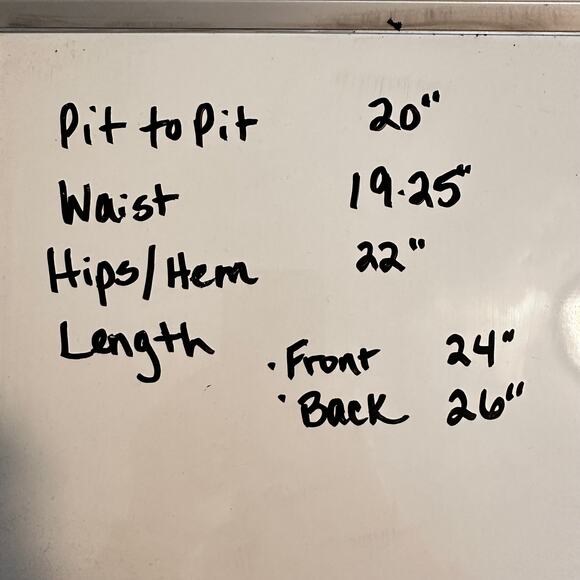 Pit to Pit 20"
Waist 19.25"
Hips/Hem 22"
Length
· Front 24"
· Back 26"